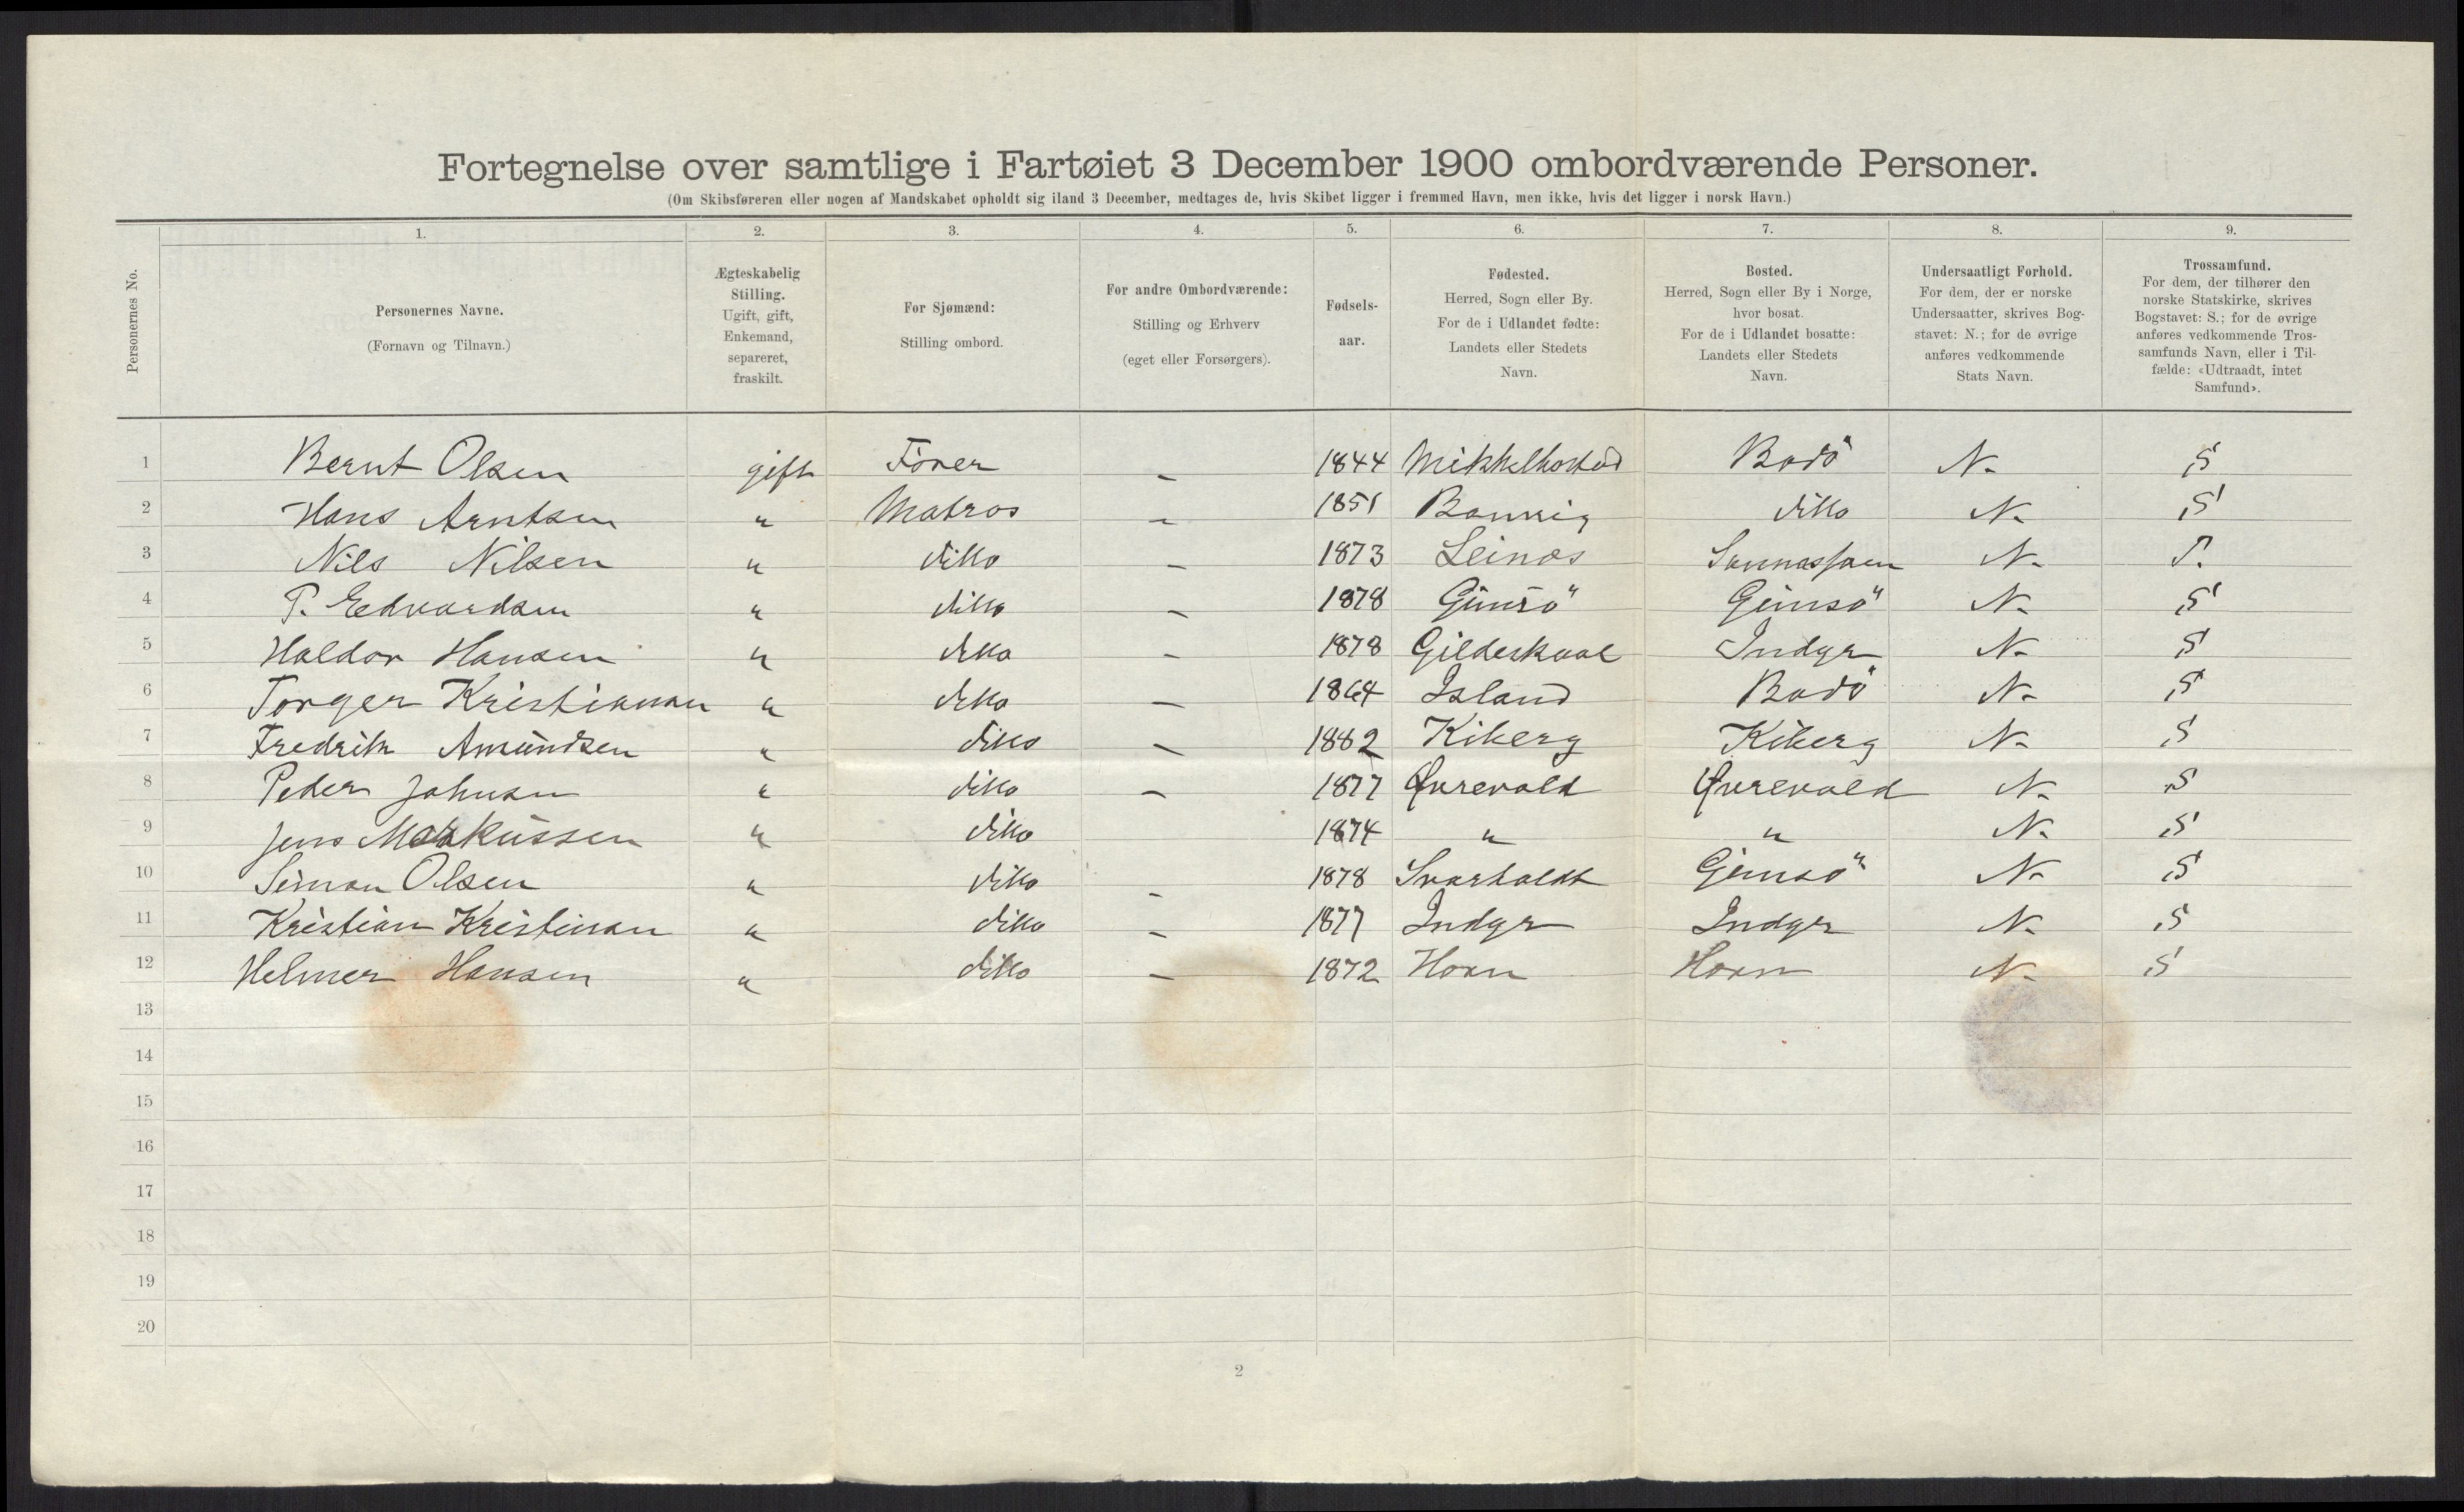 Fortegnelse over samtlige i Fartøiet 3 December 1900 ombordværende Personer.
(Om Skibsføreren eller nogen af Mandskabet opholdt sig iland 3 December, medtages de, hvis Skibet ligger i fremmed Havn, men ikke, hvis det ligger i norsk Havn.)
Personernes No.
1.
Personernes Navne.
(Fornavn og Tilnavn.)
2.
Ægteskabelig
Stilling.
Ugift, gift,
Enkemand,
separeret,
fraskilt.
3.
For Sjømænd:
Stilling ombord.
4.
For andre Ombordværende:
Stilling og Erhverv
(eget eller Forsørgers).
5.
Fødsels-
aar.
6.
Fødested.
Herred, Sogn eller By.
For de i Udlandet fødte:
Landets eller Stedets
Navn.
7.
Bosted.
Herred, Sogn eller By i Norge,
hvor bosat.
For de i Udlandet bosatte:
Landets eller Stedets
Navn.
8.
Undersaatligt Forhold.
For dem, der er norske
Undersaatter, skrives Bog-
stavet: N.; for de øvrige
anføres vedkommende
Stats Navn.
9.
Trossamfund.
For dem, der tilhører den
norske Statskirke, skrives
Bogstavet: S.; for de øvrige
anføres vedkommende Tros-
samfunds Navn, eller i Til-
fælde: «Udtraadt, intet
Samfund».
1 Bernt Olsen gift Förer - 1844 Bodö N. S
2 Hans Arntsen " Matros - 1851 ditto N. S
3 Nils Nilsen " ditto - 1873 Leinæs N. S.
4 P. Edvardsen " ditto - 1878 Gimsö Gimsö N. S
5 Haldor Hansen " ditto - 1878 Gildeskaal Indyr N. S
6 Torger Kristiansen " ditto - 1864 Island Bodö N. S
7 Fredrik Amundsen " ditto - 1882 Kiberg Kiberg N. S
8 Peder Johnsen " ditto - 1877 N. S
9 Jens Markussen " ditto 1874 " " N. S
10 Simon Olsen " ditto - 1878 Svartholdt Gimsö N. S
11 Kristian Kristiansen " ditto - 1877 Indyr Indyr N. S
12 Helmer Hansen " ditto - 1872 Horn Horn N. S
13
14
15
16
17
18
19
20
2